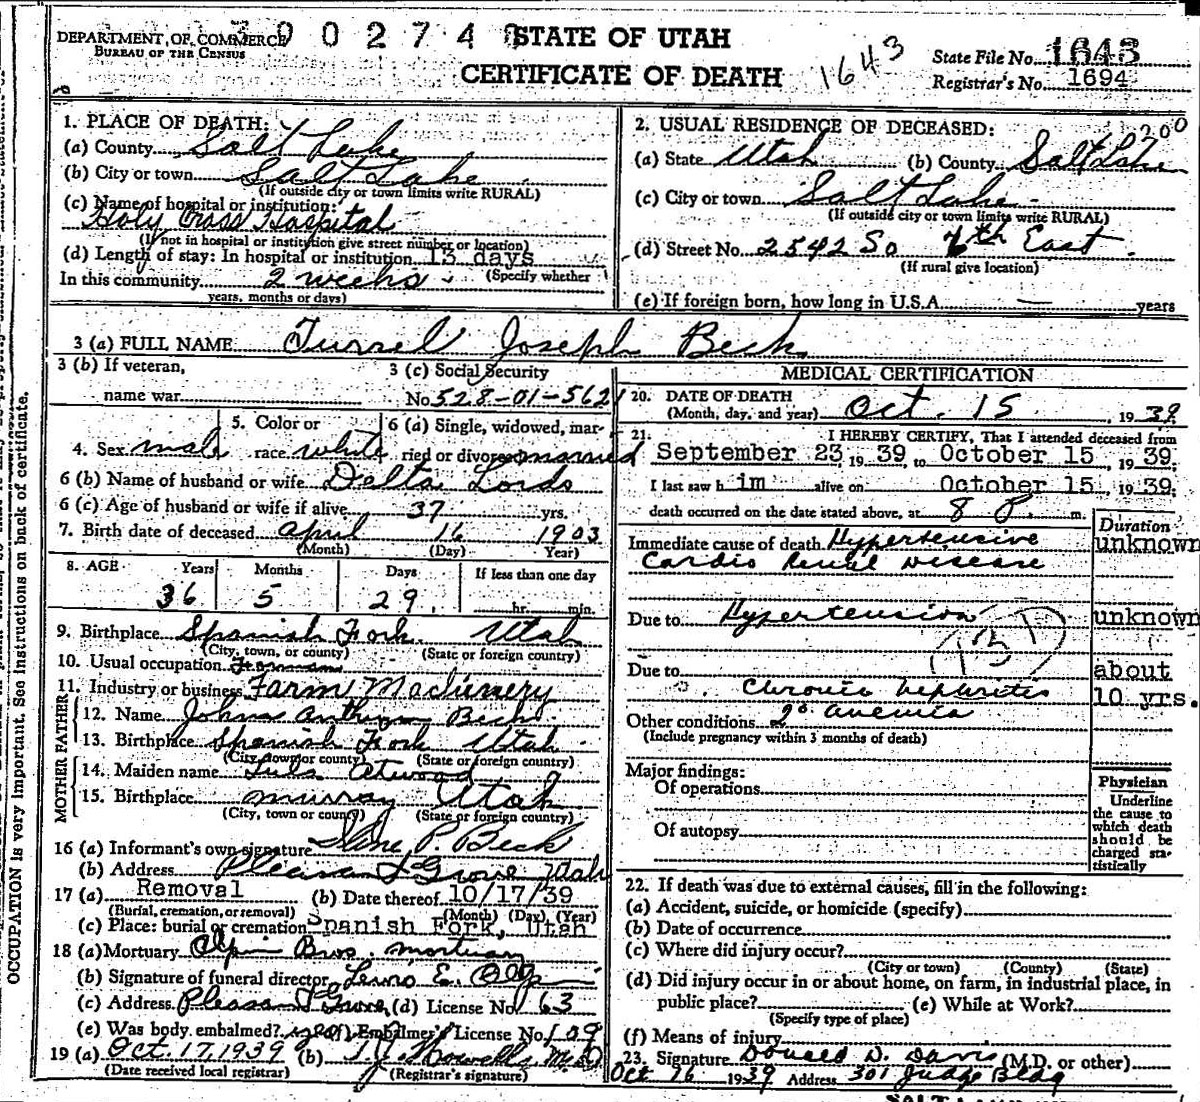 DEPARTMENT OF COMMERCE
BUREAU OF THE CENSUS
390274
STATE OF UTAH
CERTIFICATE OF DEATH
1643
State File No. 1643
Registrar's No. 1694
1. PLACE OF DEATH:
(a) County Salt Lake
(b) City or town Salt Lake
(If outside city or town limits write RURAL)
(c) Name of hospital or institution:
Holy Cross Hospital
(If not in hospital or institution give street number or location)
(d) Length of stay: In hospital or institution 13 days
(Specify whether
In this community 2 weeks
years, months or days)
2. USUAL RESIDENCE OF DECEASED: 200
(a) State Utah (b) County Salt Lake
(c) City or town Salt Lake
(If outside city or town limits write RURAL)
(d) Street No. 2542 So 6th East
(If rural give location)
(e) If foreign born, how long in U.S.A. — years
3 (a) FULL NAME Turrel Joseph Beck
3 (b) If veteran, name war
3 (c) Social Security No. 528-01-5621
4. Sex male
5. Color or race white
6 (a) Single, widowed, married or divorced married
6 (b) Name of husband or wife Delta Lords
6 (c) Age of husband or wife if alive 37 yrs.
7. Birth date of deceased April 16 1903
(Month) (Day) Year)
8. AGE Years Months Days If less than one day
36 5 29 hr. min.
9. Birthplace Spanish Fork Utah
(City, town, or county) (State or foreign country)
10. Usual occupation
11. Industry or business Farm Machinery
FATHER
12. Name John Anthony Beck
13. Birthplace Spanish Fork Utah
(City, town or county) (State or foreign country)
MOTHER
14. Maiden name Lula Atwood
15. Birthplace Murray Utah
(City, town or county) (State or foreign country)
16 (a) Informant's own signature P. Beck
(b) Address Pleasant Grove Utah
17 (a) Removal (b) Date thereof 10/17/39
(Burial, cremation, or removal) (Month) (Day) (Year)
(c) Place: burial or cremation Spanish Fork, Utah
18 (a) Mortuary Olpin Bros. Mortuary
(b) Signature of funeral director Lewis E. Olpin
(c) Address Pleasant Grove (d) License No. 63
(e) Was body embalmed? yes (f) Embalmer's License No. 109
19 (a) Oct. 17, 1939 (b) T. J. Howells M.D.
(Date received local registrar) (Registrar's signature)
MEDICAL CERTIFICATION
20. DATE OF DEATH
(Month, day, and year) Oct. 15 1939
21. I HEREBY CERTIFY, That I attended deceased from
September 23, 1939, to October 15, 1939.
I last saw him alive on October 15, 1939.
death occurred on the date stated above, at 8 P. m.
Duration
Immediate cause of death Hypertensive unknown
Cardio Renal Disease
Due to Hypertension unknown
131
Due to about
Chronic Nephritis 10 yrs.
Other conditions 2° anemia
(Include pregnancy within 3 months of death)
Major findings:
Of operations
Of autopsy
Physician
Underline
the cause to
which death
should be
charged sta-
tistically
22. If death was due to external causes, fill in the following:
(a) Accident, suicide, or homicide (specify)
(b) Date of occurrence
(c) Where did injury occur?
(City or town) (County) (State)
(d) Did injury occur in or about home, on farm, in industrial place, in
public place? (e) While at Work?
(Specify type of place)
(f) Means of injury
23. Signature Donald D. Davis (M.D. or other)
Oct 16 1939 Address 301 Judge Bldg
OCCUPATION is very important. See instructions on back of certificate.